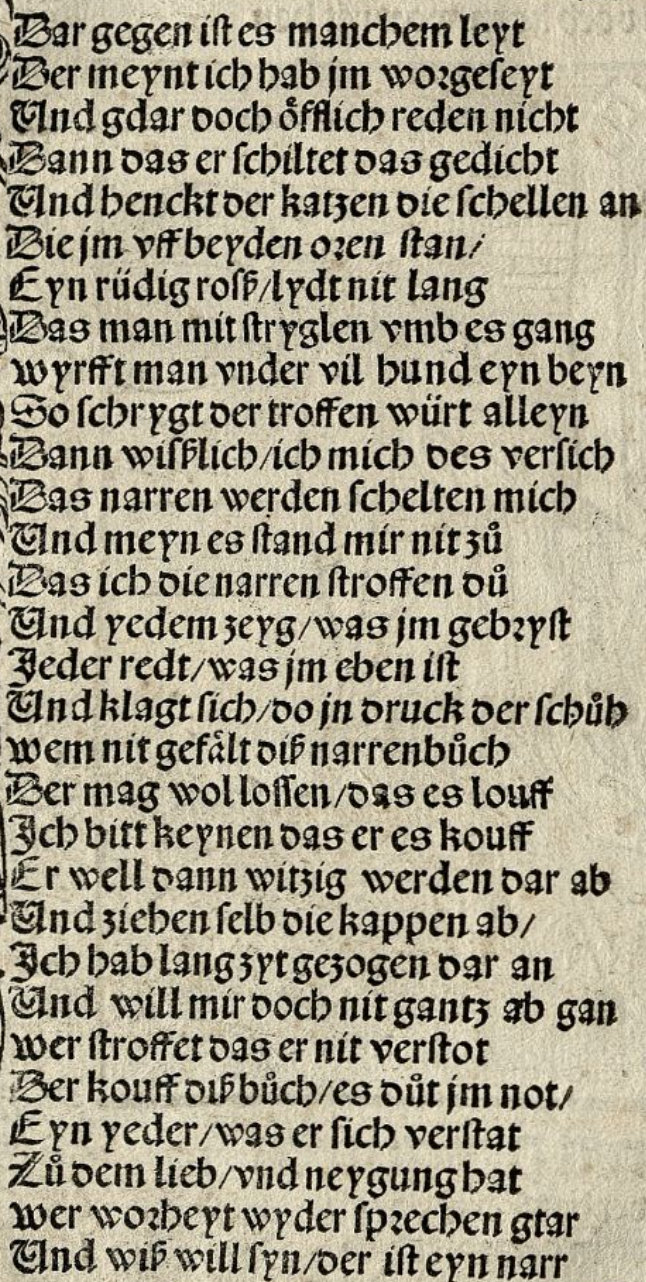 Dar gegen ist es manchem leyt
Der meynt ich hab jm worgeseyt
Und gdar doch oͤfflich reden nicht
Dann das er schiltet das gedicht
Und henckt der katzen die schellen an
Die jm vff beyden oren stan/
Eyn rüdig rosß/lydt nit lang
Das man mit stryglen vmb es gang
wyrfft man vnder vil hund eyn beyn
So schrygt der troffen würt alleyn
Dann wisßlich/ich mich des versich
Das narren werden schelten mich
Und meyn es stand mir nit zuͦ
Das ich die narren stroffen duͦ
Und yedem zeyg/was jm gebryst
Jeder redt/was jm eben ist
Und klagt sich/do jn druck der schuͦh
wem nit gefaͤlt diß narrenbuͦch
Der mag wol lossen/das es louff
Ich bitt keynen das er es kouff
Er well dann witzig werden dar ab
Und ziehen selb die kappen ab/
Ich hab lang zyt gezogen dar an
Und will mir doch nit gantz ab gan
wer stroffet das er nit verstot
Der kouff diß buͦch/es duͦt jm not/
Eyn yeder/was er sich verstat
Zuͦ dem lieb/vnd neygung hat
wer worheyt wyder sprechen gtar
Und wiß will syn/der ist eyn narr